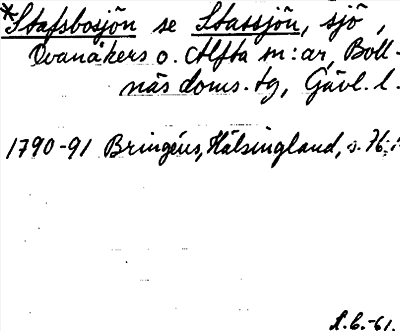 *Stafsbosjön se Stassjön, sjö,
Ovanåkers o. Alfta sn:ar, Boll-
näs doms. tg, Gävl. l.
1790-91 Bringéus, Hälsingland, s. 76;
-61.